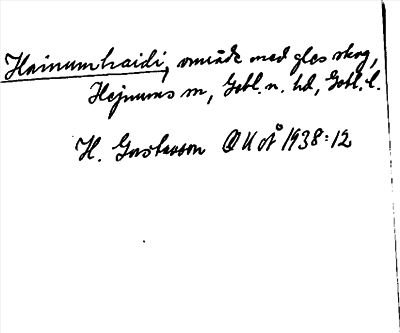 Hainumhaidi, område med gles skog,
Hejnums sn, Gotl. n. hd, Gotl. l.
H. Gustavson 1938:12